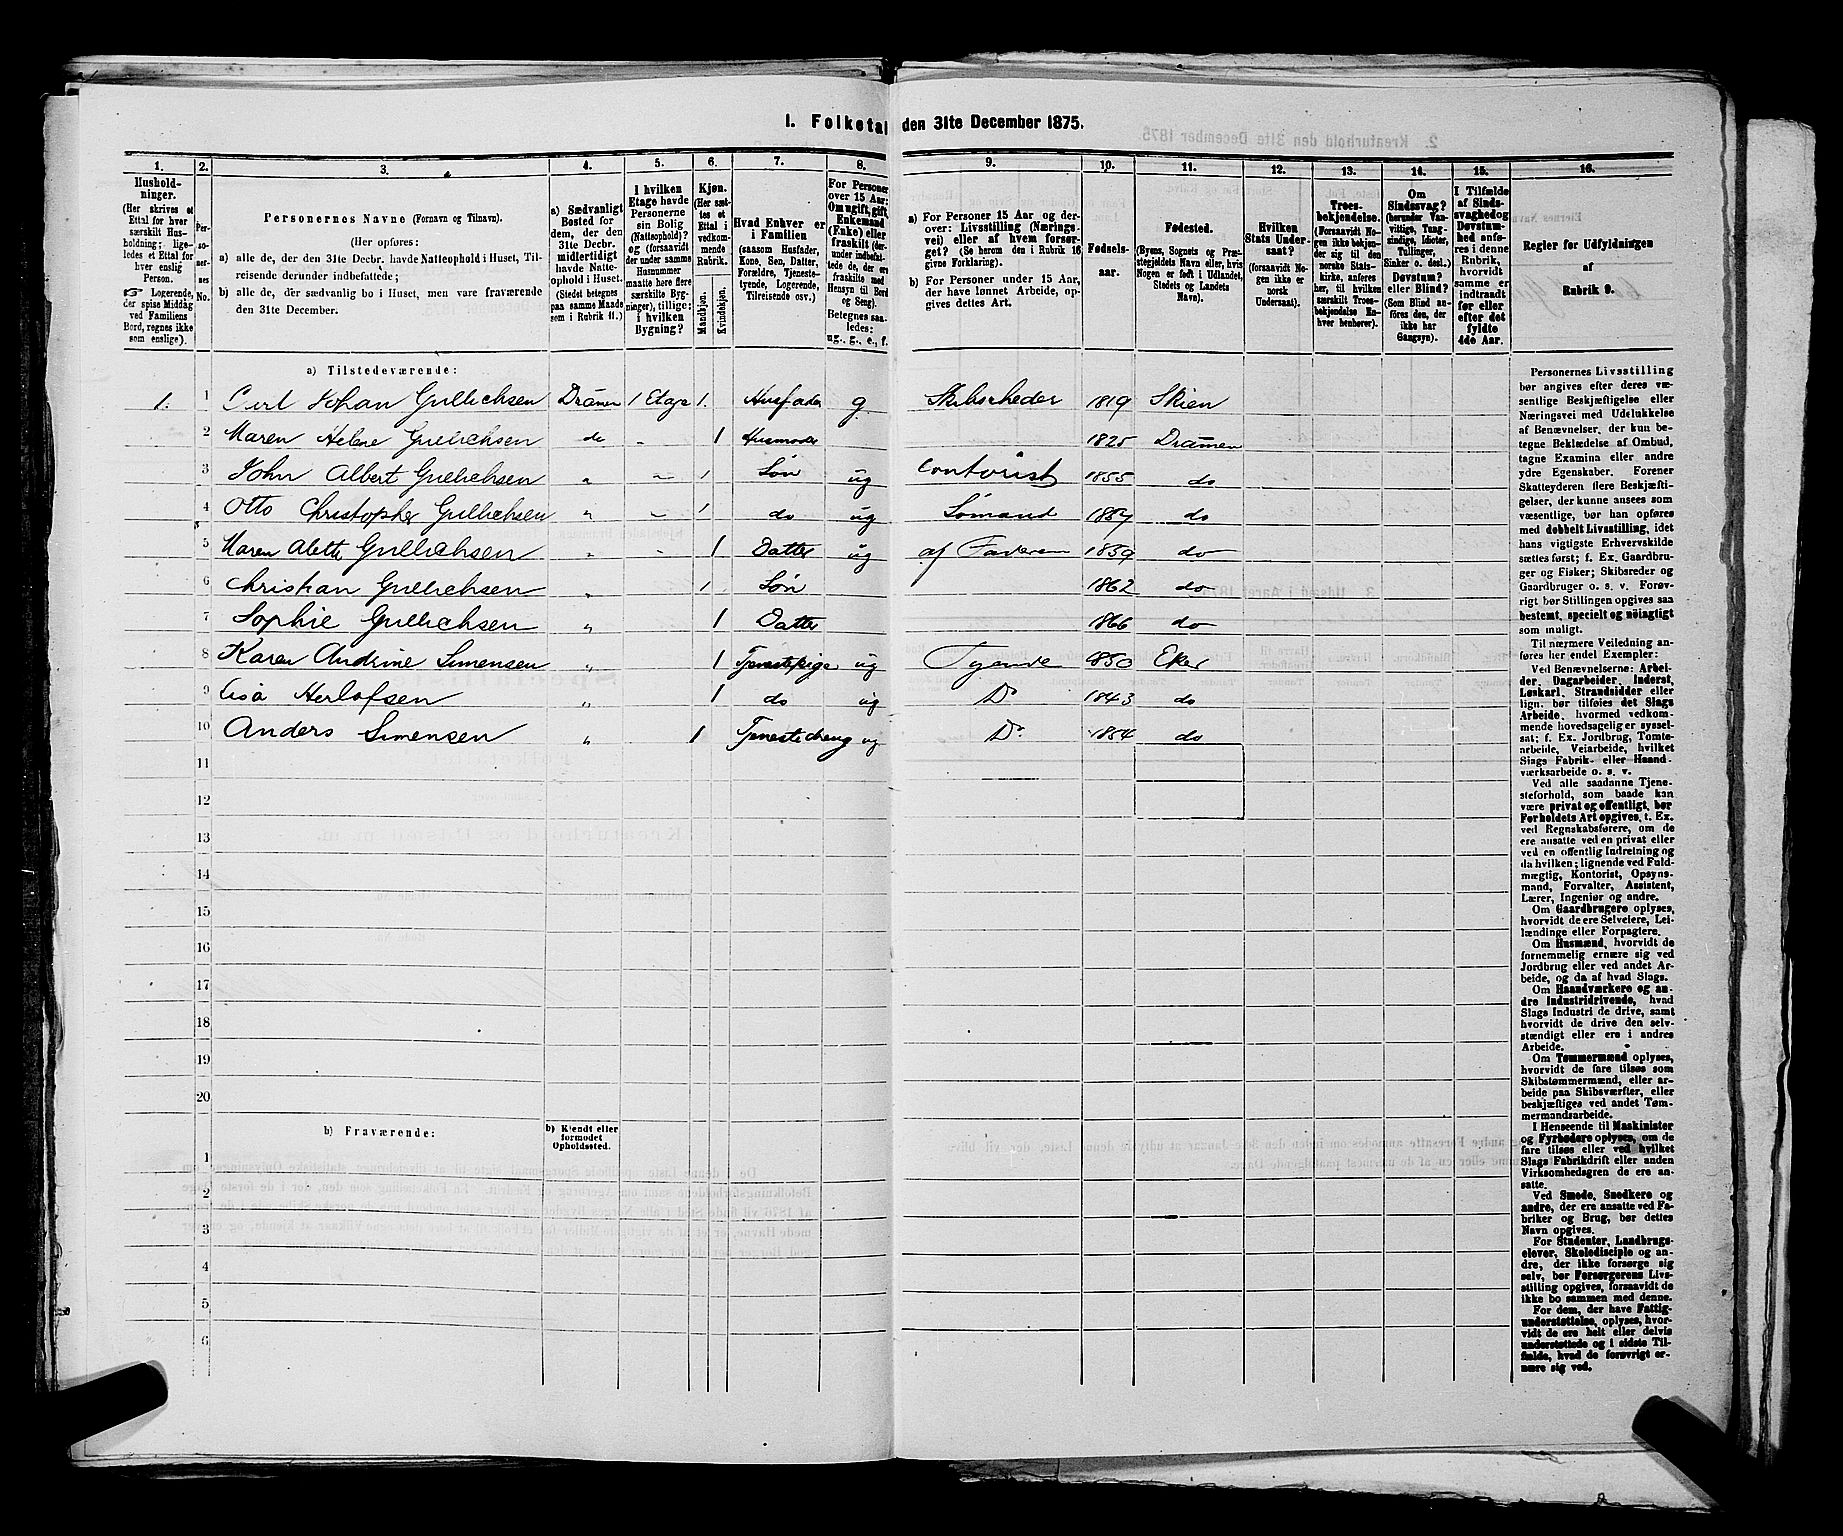 1. Folketal den 31te December 1875.
1. 2. 3. 4. 5. 6. 7. 8. 9. 10. 11. 12. 13. 14. 15. 16.
Husholdninger.
(Her skrives et
Ettal for hver
særskilt Husholdning;
ligeledes et Ettal for
hver enslig
Person.
☞ Logerende,
der spise Middag
ved Familiens
Bord, regnes ikke
som enslige).
Personernes No.
Personernes Navne (Fornavn og Tilnavn).
(Her opføres:
a) alle de, der den 31te Decbr. havde Natteophold i Huset, Tilreisende derunder indbefattede;
b) alle de, der sædvanlig bo i Huset, men vare fraværende
den 31te December.
a) Sædvanligt
Bosted for
dem, der den
31te Decbr.
midlertidigt
havde Natteophold i Huset.
(Stedet betegnes
paa samme Maade
som i Rubrik 11.)
I hvilken
Etage havde
Personerne
sin Bolig
(Natteophold)?
og (forsaavidt
der under samme
Husnummer
maatte høre flere
særskilte Bygninger), tillige:
i hvilken
Bygning?
Kjøn.
(Her sættes et
Ettal i
vedkommende
Rubrik.
Mandkjøn.
Kvindekjøn.
Hvad Enhver er
i Familien
(saasom Husfader,
Kone, Søn, Datter,
Forældre, Tjenestetyende, Logerende,
Tilreisende osv.)
For Personer
over 15 Aar:
Om ugift, gift,
Enkemand
(Enke) eller
fraskilt (derunder indbefattede de, der ere
fraskilte med
Hensyn til Bord
og Seng).
Betegnes saaledes:
ug., g., e., f.
a) For Personer 15 Aar og derover: Livsstilling (Næringsvei) eller af hvem forsørget? (Se herom den i Rubrik 16
givne Forklaring).
b) For Personer under 15 Aar,
der have lønnet Arbeide, opgives dettes Art.
Fødselsaar.
Fødested.
(Byens, Sognets og Præstegjeldets Navn eller, hvis
Nogen er født i Udlandet,
Stedets og Landets
Navn).
Hvilken
Stats Undersaat?
(forsaavidt Nogen ikke er
norsk
Undersaat).
Troesbekjendelse.
(Forsaavidt Nogen ikke bekjender sig til den
norske Statskirke, anføres
her, til hvilken
særskilt Troesbekjendelse Enhver henhører).
Om
Sindssvag?
(herunder Vanvittige, Tungsindige, Idioter,
Tullinger,
Sinker o. desl.)
Døvstum?
eller Blind?
(Som Blind anføres den, der
ikke har
Gangsyn).
I Tilfælde
af Sindssvaghed og
Døvstumhed anføres i denne
Rubrik,
hvorvidt
samme er
indtraadt
før eller
efter det
fyldte
4de Aar.
Regler for Udfyldningen
af
Rubrik 9.
a) Tilstedeværende:
1. 1 Carl Johan Gullichsen Dramen 1 Etage 1. Husfader g Skibsrheder 1819 Skien
2 Maren Helene Gullichsen do " 1 Husmoder 1825 Dramen
3 John Albert Gullichsen " " 1 Søn ug Contorist 1855 do
4 Otto Christopher Gullichsen " " 1 do ug Sømand 1857 do
5 Maren Alette Gullichsen " " 1 Datter ug af Faderen 1859 do
6 Christian Gullichsen " 1 Søn 1862 do
7 Sophie Gullichsen " 1 Datter 1866 do
8 Karen Andrine Simensen " 1 Tjenestepige ug Tyende 1850 Eker
9 Lisa Herlofsen " 1 do ug Do 1843 do
10 Anders Simensen " 1 Tjenestedreng ug Do 1854 do
11
12
13
14
15
16
17
18
19
20
b) Fraværende:
b) Kjendt eller
formodet
Opholdssted.
1
2
3
4
5
6
Personernes Livsstilling
bør angives efter deres væsentlige Beskjæftigelse eller
Næringsvei med Udelukkelse
af Benævnelser, der kun betegne Beklædelse af Ombud,
tagne Examina eller andre
ydre Egenskaber. Forener
Skatteyderen flere Beskjæftigelser, der kunne ansees som
væsentlige, bør han opføres
med dobbelt Livsstilling, idet
hans vigtigste Erhvervskilde
sættes først; f. Ex. Gaardbruger og Fisker; Skibsreder og
Gaardbruger o. s. v. Forøvrigt bør Stillingen opgives saa
bestemt, specielt og nøiagtigt
som muligt.
Til nærmere Veiledning anføres her endel Exempler:
Ved Benævnelserne: Arbeider, Dagarbeider, Inderst,
Løskarl, Strandsidder eller
lign. bør tilføies det Slags
Arbeide, hvormed vedkommende hovedsagelig er sysselsat; f. Ex. Jordbrug, Tomtearbeide, Veiarbeide, hvilket
Slags Fabrik- eller Haandværksarbeide o. s. v.
Ved alle saadanne Tjenesteforhold, som baade kan
være privat og offentligt, bør
Forholdets Art opgives, t. Ex.
ved Regnskabsførere, om de
ere ansatte ved en privat eller
ved en offentlig Indretning og
da hvilken; lignende ved Fuldmægtig, Kontorist, Opsynsmand, Forvalter, Assistent,
Lærer, Ingeniør og andre.
Om Gaardbrugere oplyses,
hvorvidt de ere Selveiere, Leilændinge eller Forpagtere.
Om Husmænd, hvorvidt de
fornemmelig ernære sig ved
Jordbrug eller ved andet Arbeide, og da af hvad Slags.
Om Haandværkere og andre Industridrivende, hvad
Slags Industri de drive, samt
hvorvidt de drive den selvstændigt eller ere i andres
Arbeide.
Om Tømmermænd oplyses,
hvorvidt de fare tilsøs som
Skibstømmermænd, eller arbeide paa Skibsværfter, eller
beskjæftiges ved andet Tømmermandsarbeide.
I Henseende til Maskinister
og Fyrbødere oplyses, om de
fare tilsøs eller ved hvilket
Slags Fabrikdrift eller anden
Virksomhedsgren de ere ansatte.
Ved Smede, Snedkere og
andre, der ere ansatte ved Fabriker og Brug, bør dettes
Navn opgives.
For Studenter, Landbrugselever, Skoledisciple og andre, der ikke forsørge sig
selv, bør Forsørgerens Livsstilling opgives, forsaavidt de
ikke bo sammen med denne.
For dem, der have Fattigunderstøttelse, oplyses, hvorvidt de ere helt eller delvis
understøttede og i sidste Tilfælde, hvad de forøvrigt ernære sig ved.